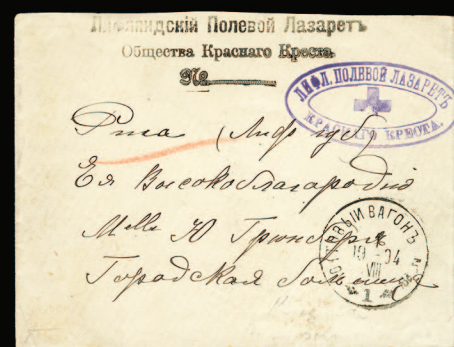 Лифляндскій Полевой Лазаретъ
Общества Краснаго Креста.
№
ЛИФЛ. ПОЛЕВОЙ ЛАЗАРЕТЪ
КРАСНАГО КРЕСТА.
Рига (Лифл губ)
Ея Высокоблагородію
Mlle Ю Грюнберг
Городская больница
ПОЧТОВЫЙ ВАГОНЪ
19 04
VIII
1